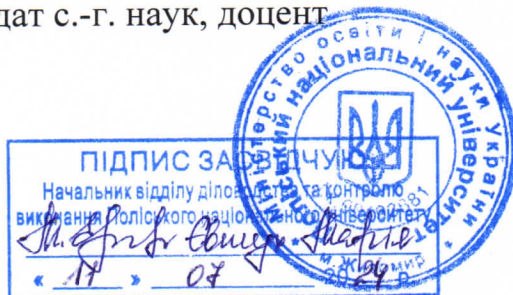 дат с.-г. наук, доцент
Міністерство освіти і науки України
Поліський національний університет
м. Житомир
ПІДПИС ЗАСВІДЧУЮ
Начальник відділу діловодства та контролю
виконання Поліського національного університету
« 11 » 07 2024 р.